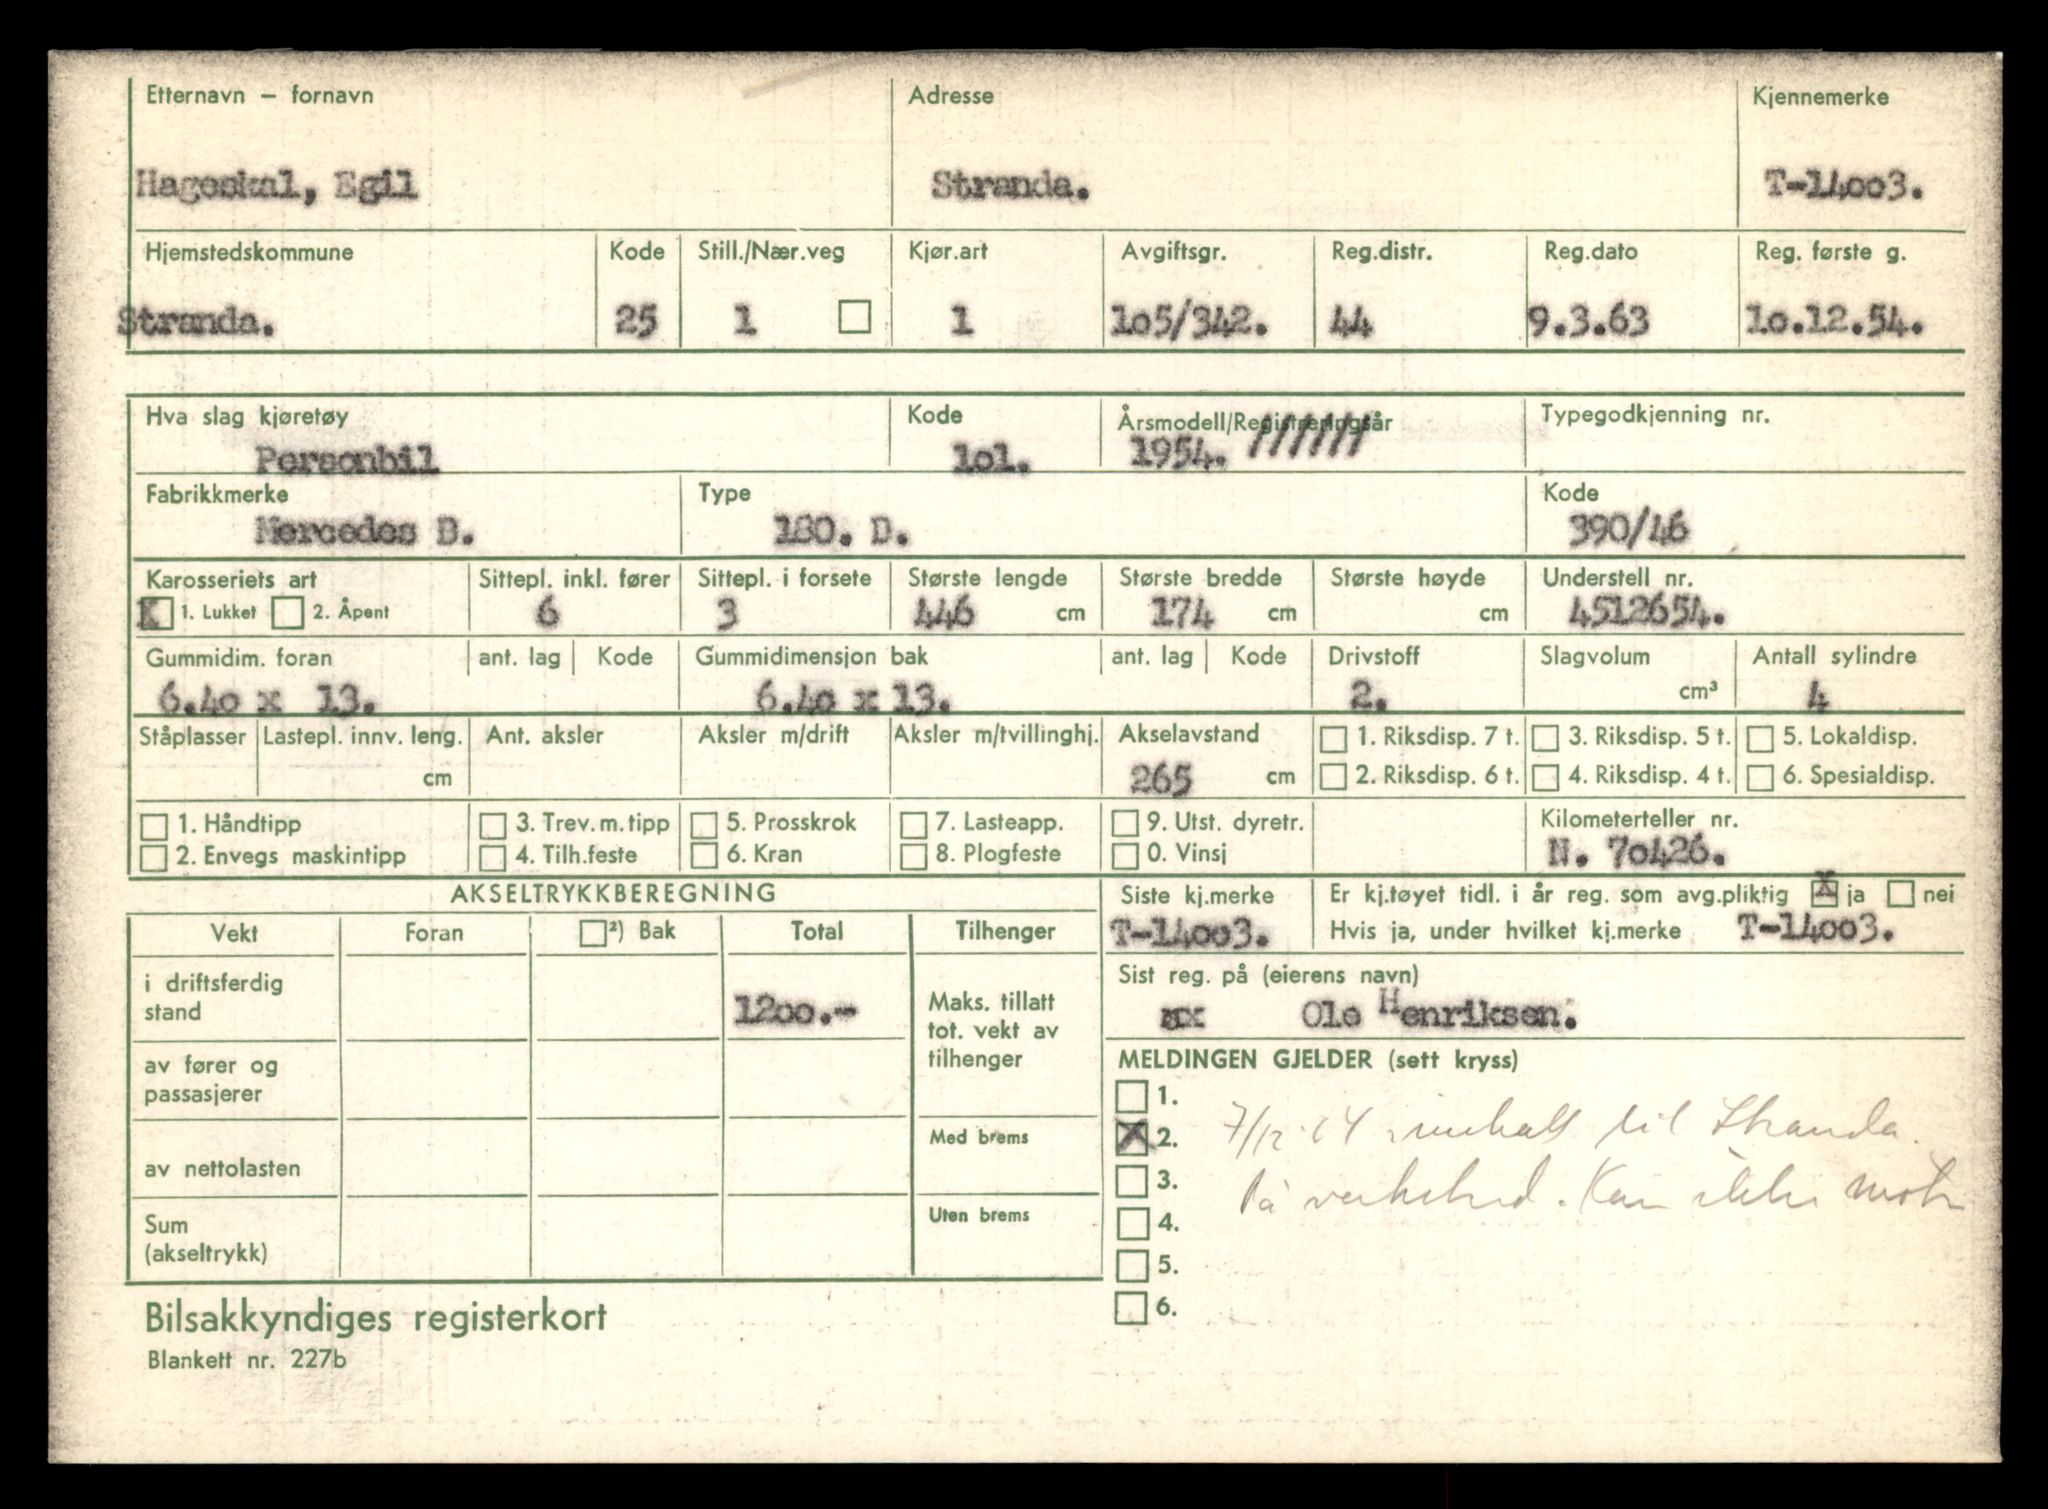 Etternavn – fornavn Adresse Kjennemerke
Hageskal, Egil Stranda. T-14oo3.
Hjemstedskommune Kode Still./Nær.veg Kjør.art Avgiftsgr. Reg.distr. Reg.dato Reg. første g.
Stranda. 25 1 1 1o5/342. 44 9.3.63 1o.12.54.
Hva slag kjøretøy Kode Årsmodell/Registreringsår Typegodkjenning nr.
Personbil 1o1. 1954. //////
Fabrikkmerke Type Kode
Mercedes B. 180. D. 390/46
Karosseriets art Sittepl. inkl. fører Sittepl. i forsete Største lengde Største bredde Største høyde Understell nr.
X 1. Lukket 2. Åpent 6 3 446 cm 174 cm cm 4512654.
Gummidim. foran ant. lag Kode Gummidimensjon bak ant. lag Kode Drivstoff Slagvolum Antall sylindre
6.4o x 13. 6.4o x 13. 2. cm³ 4
Ståplasser Lastepl. innv. leng. Ant. aksler Aksler m/drift Aksler m/tvillinghj. Akselavstand 1. Riksdisp. 7 t. 3. Riksdisp. 5 t. 5. Lokaldisp.
cm 265 cm 2. Riksdisp. 6 t. 4. Riksdisp. 4 t. 6. Spesialdisp.
1. Håndtipp 3. Trev. m. tipp 5. Prosskrok 7. Lasteapp. 9. Utst. dyretr. Kilometerteller nr.
2. Envegs maskintipp 4. Tilh.feste 6. Kran 8. Plogfeste 0. Vinsj N. 7o426.
AKSELTRYKKBEREGNING Siste kj.merke Er kj.tøyet tidl. i år reg. som avg.pliktig X ja nei
Vekt Foran ²) Bak Total Tilhenger T-14oo3. Hvis ja, under hvilket kj.merke T-14oo3.
i driftsferdig stand 12oo.- Maks. tillatt tot. vekt av tilhenger Sist reg. på (eierens navn)
Ole Henriksen.
av fører og passasjerer MELDINGEN GJELDER (sett kryss)
1.
Med brems X 2. 7/12 64 til Stranda.
av nettolasten 3. På verksted. Kan ikke
Sum (akseltrykk) Uten brems 4.
5.
Bilsakkyndiges registerkort 6.
Blankett nr. 227b